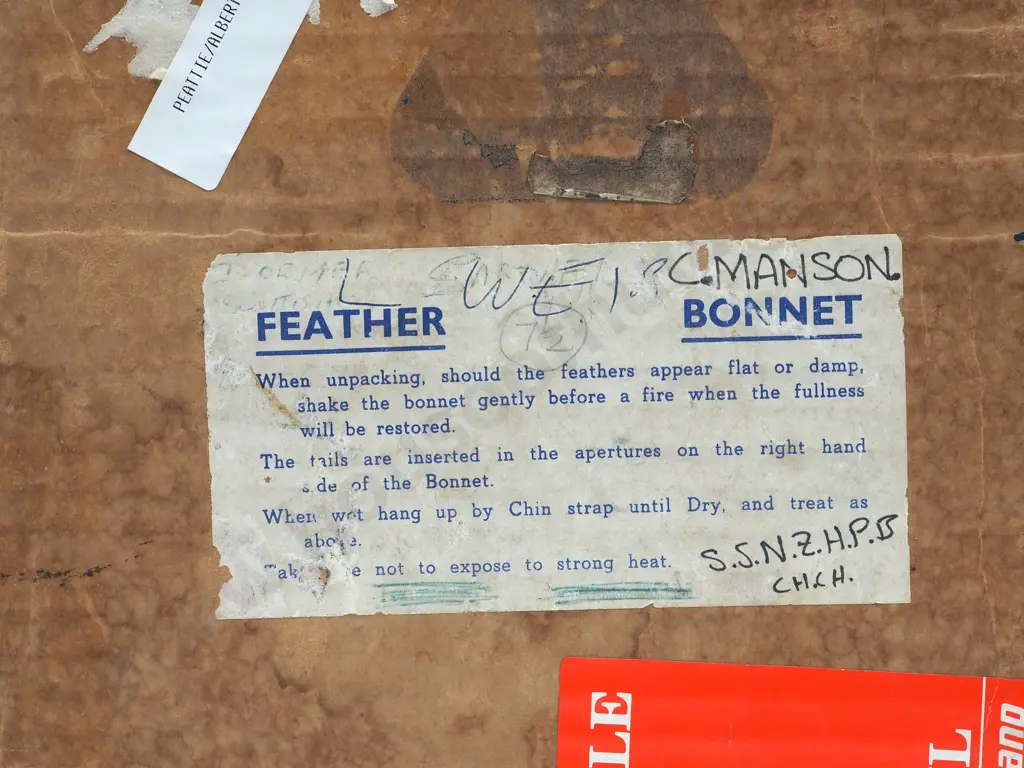 PEATTIE/ALBERT
C. MANSON.
FEATHER BONNET
72
When unpacking, should the feathers appear flat or damp,
shake the bonnet gently before a fire when the fullness
will be restored.
The tails are inserted in the apertures on the right hand
side of the Bonnet.
When wet hang up by Chin strap until Dry, and treat as
above.
not to expose to strong heat.
S.S.N.Z.H.P.B
CH.CH.
LE
L
and